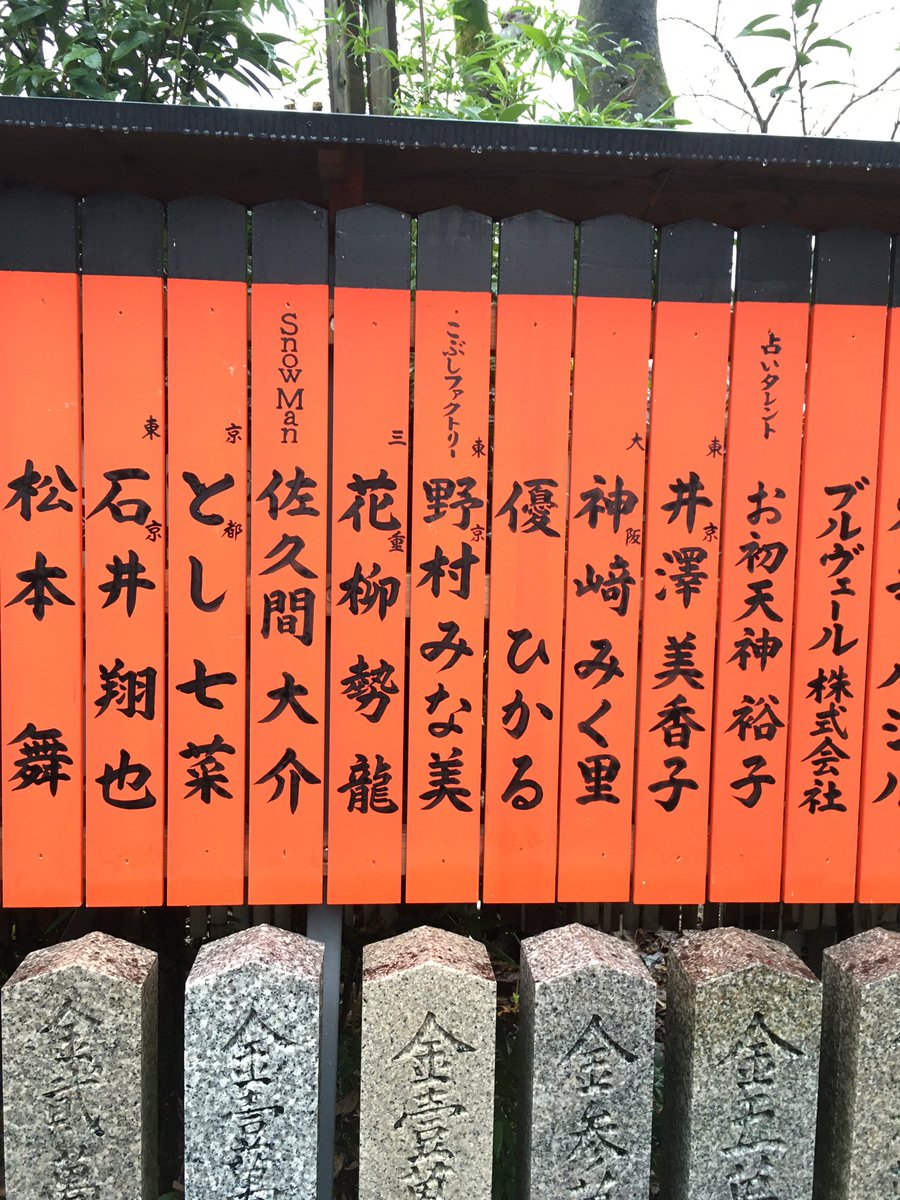 ブルヴェール 株式会社
占いタレント
お初天神 裕子
東京
井澤 美香子
大阪
神﨑 みく里
優 ひかる
こぶしファクトリー
東京
野村 みな美
三重
花柳 勢龍
Snow Man
佐久間 大介
京都
とし 七菜
東京
石井 翔也
松本 舞
金五萬
金参萬
金壹萬
金壹萬
金貮萬